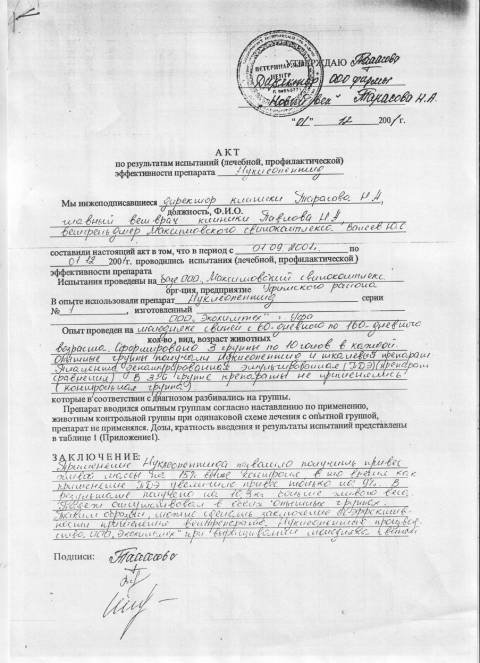 ВЕТЕРИНАРНЫЙ
ЦЕНТР
УТВЕРЖДАЮ Тарасова
Директор ООО фирмы
Тарасова Н.А.
"01" 12 2001г.
А К Т
по результатам испытаний (лечебной, профилактической)
эффективности препарата Нуклеопептид
Мы нижеподписавшиеся директор клиники Тарасова Н.А
должность, Ф.И.О.
главный вет.врач клиники Павлова Н.А
ветфельдшер Максимовского свинокомплекса
составили настоящий акт в том, что в период с 01 09 2001г. по
01 12 2001г. проводились испытания (лечебной, профилактической)
эффективности препарата
Испытания проведены на базе ООО "Максимовский свинокомплекс
орг-ция, предприятие Уфимского района
В опыте использовали препарат Нуклеопептид серии
№ 1 , изготовленный
ООО "Экохимтех" г. Уфа
Опыт проведен на молодняке свиней с 60-дневного по 160-дневного
кол-во, вид, возраст животных
возраста. Сформировано 3 группы по 10 голов в каждой.
Опытные группы получали Нуклеопептид и тканевой препарат
Плацента денатурированная эмульгированная (ПДЭ) (препарат
сравнения). В 3й группе препараты не применялись
(контрольная группа)
которые в соответствии с диагнозом разбивались на группы.
Препарат вводился опытным группам согласно наставлению по применению,
животным контрольной группы при одинаковой схеме лечения с опытной группой,
препарат не применялся. Дозы, кратность введения и результаты испытаний представлены
в таблице 1 (Приложение1).
ЗАКЛЮЧЕНИЕ:
Применение Нуклеопептида позволило получить привес
живой массы на 15% выше контроля в то время как
применение ПДЭ увеличило привес только на 9%. В
результате получено на 10,3кг больше живого веса.
Падеж отсутствовал в обеих опытных группах.
Таким образом, можно сделать заключение об эффектив-
ности применения ветпрепарата "Нуклеопептид" производ-
ства ООО "Экохимтех" при выращивании молодняка свиней
Подписи: Тарасова